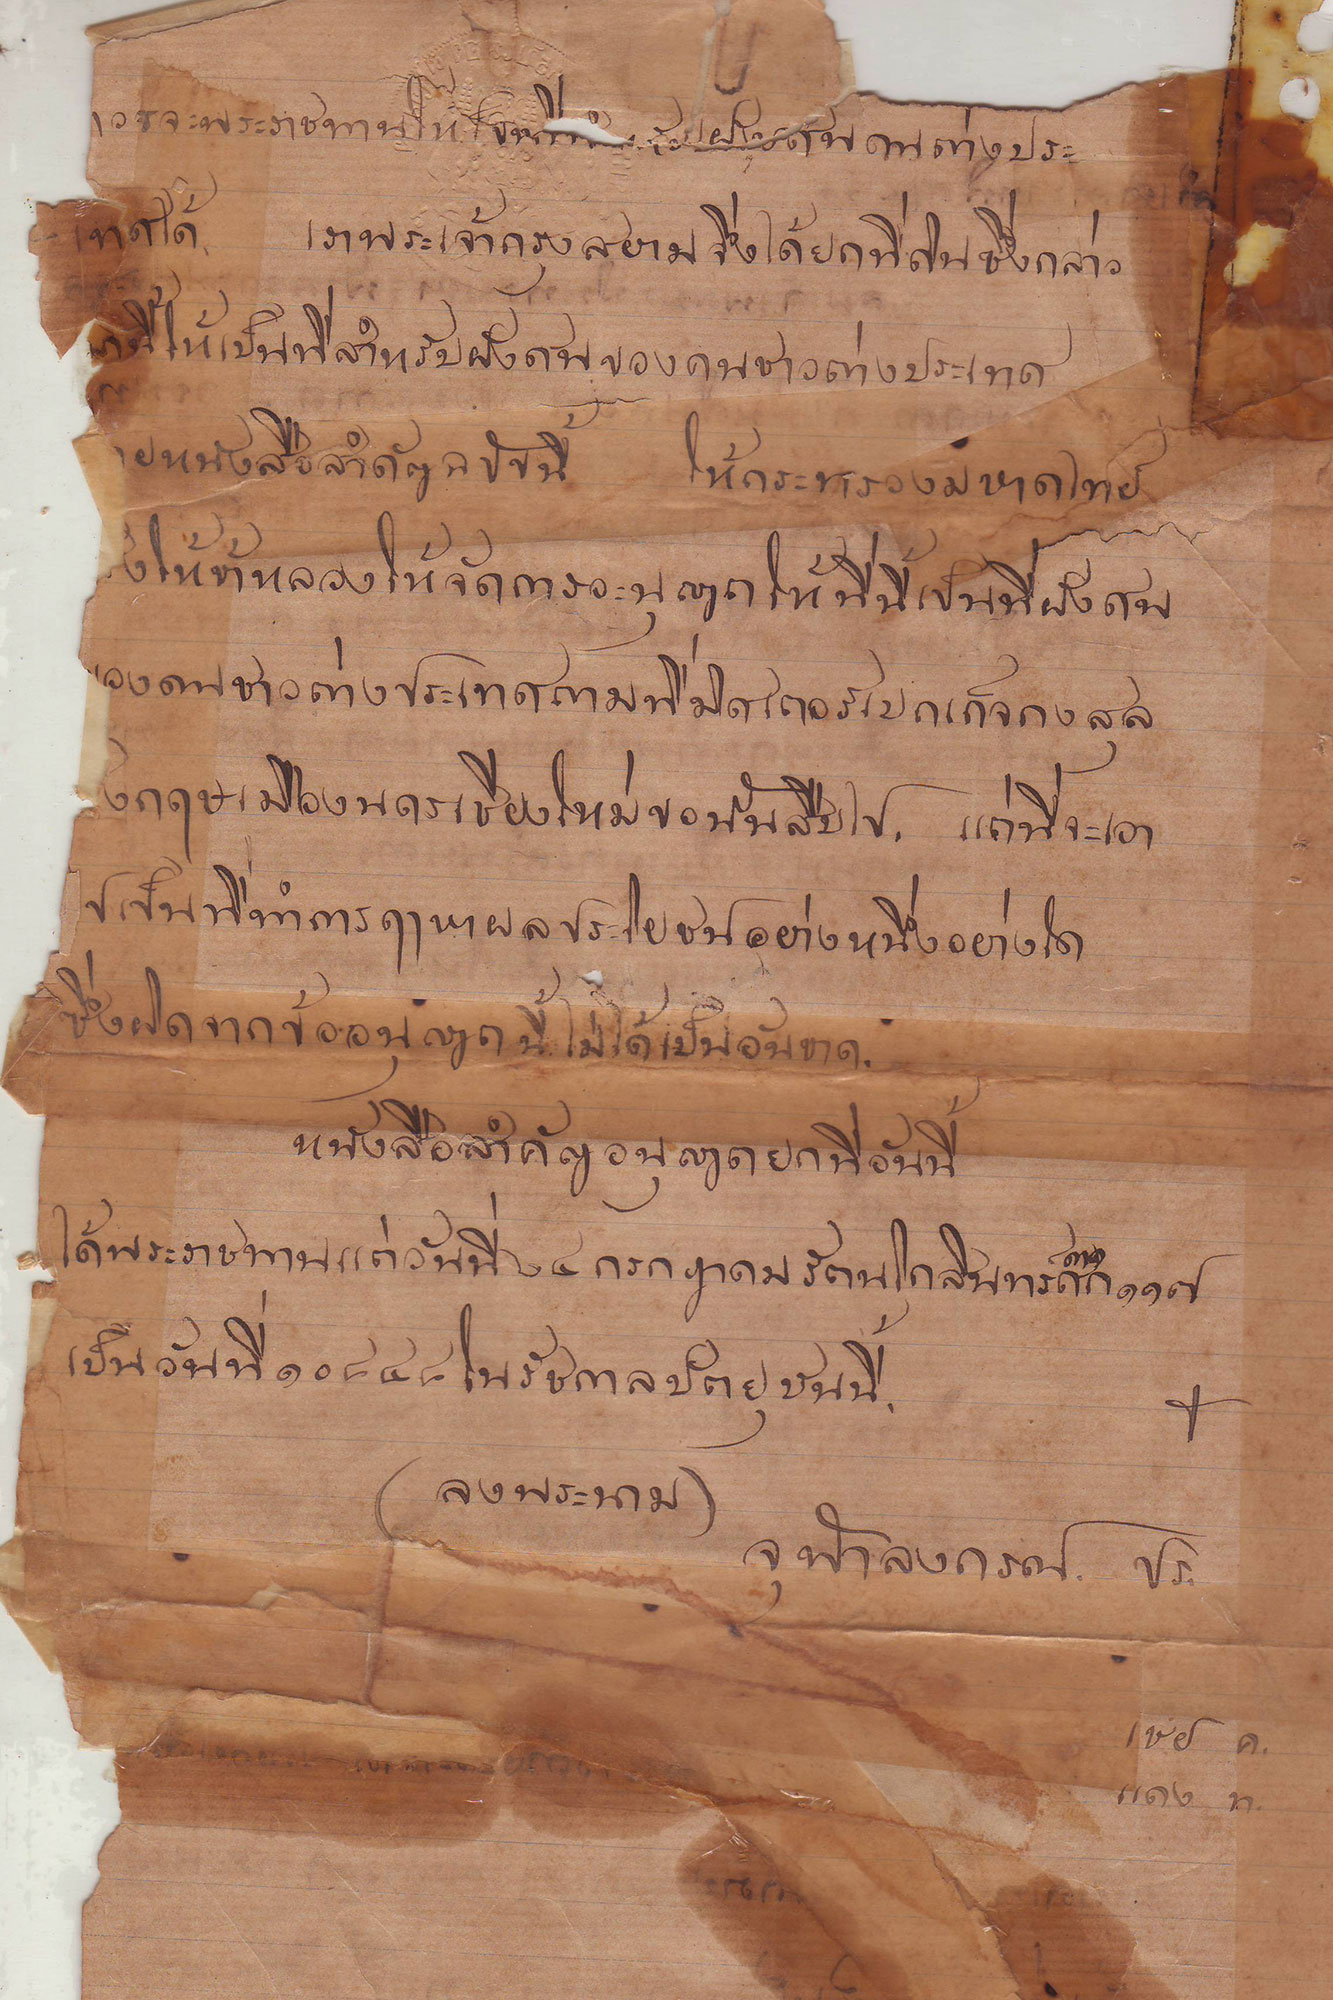 ควรจะพระราชทานให้ ศพคนต่างประ
เทศได้ เราพระเจ้ากรุงสยามจึ่งได้ยกที่ดินซึ่งกล่าว
มานี้ให้เป็นที่สำหรับฝังศพของคนชาวต่างประเทศ
หนังสือสำคัญฉบับนี้ ให้กระทรวงมหาดไทย
สั่งให้ข้าหลวงให้จัดการอะนุญาตให้ที่นี้เป็นที่ฝังศพ
ของคนชาวต่างประเทศตามที่มิสเตอร์เบกเก็จกงสุล
อังกฤษเมืองนครเชียงใหม่ขอนั้นสืบไป. แต่ที่จะเอา
ไปเป็นที่ทำการฤๅหาผลประโยชน์อย่างหนึ่งอย่างใด
ซึ่งผิดจากข้ออนุญาตนี้ ไม่ได้เป็นอันขาด.
หนังสือสำคัญอนุญาตยกที่อันนี้
ได้พระราชทานแต่วันที่ ๒๔ กรกฎาคม รัตนโกสินทรศก ๑๑๗
เป็นวันที่ ๑๐๘๔๘ ในรัชกาลปัตยุบันนี้.
(ลงพระนาม)
จุฬาลงกรณ์. ปร.
เชย ค.
แดง ท.